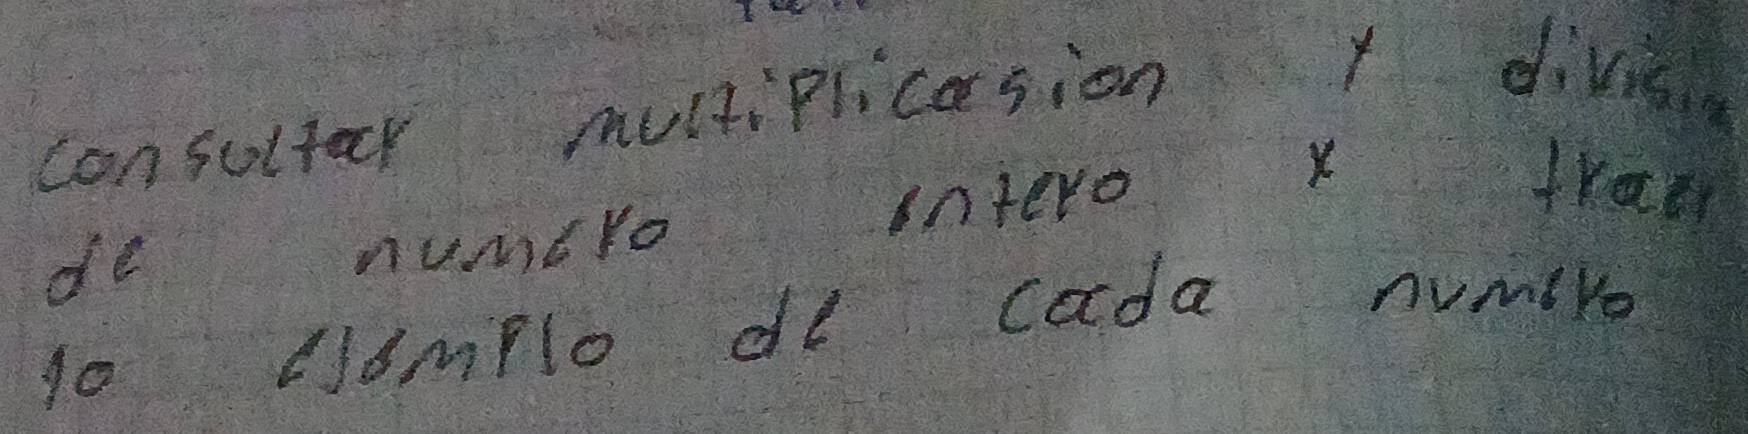 consultar multiplicasion y
de numero intero y
10 ejemplo de cada numero